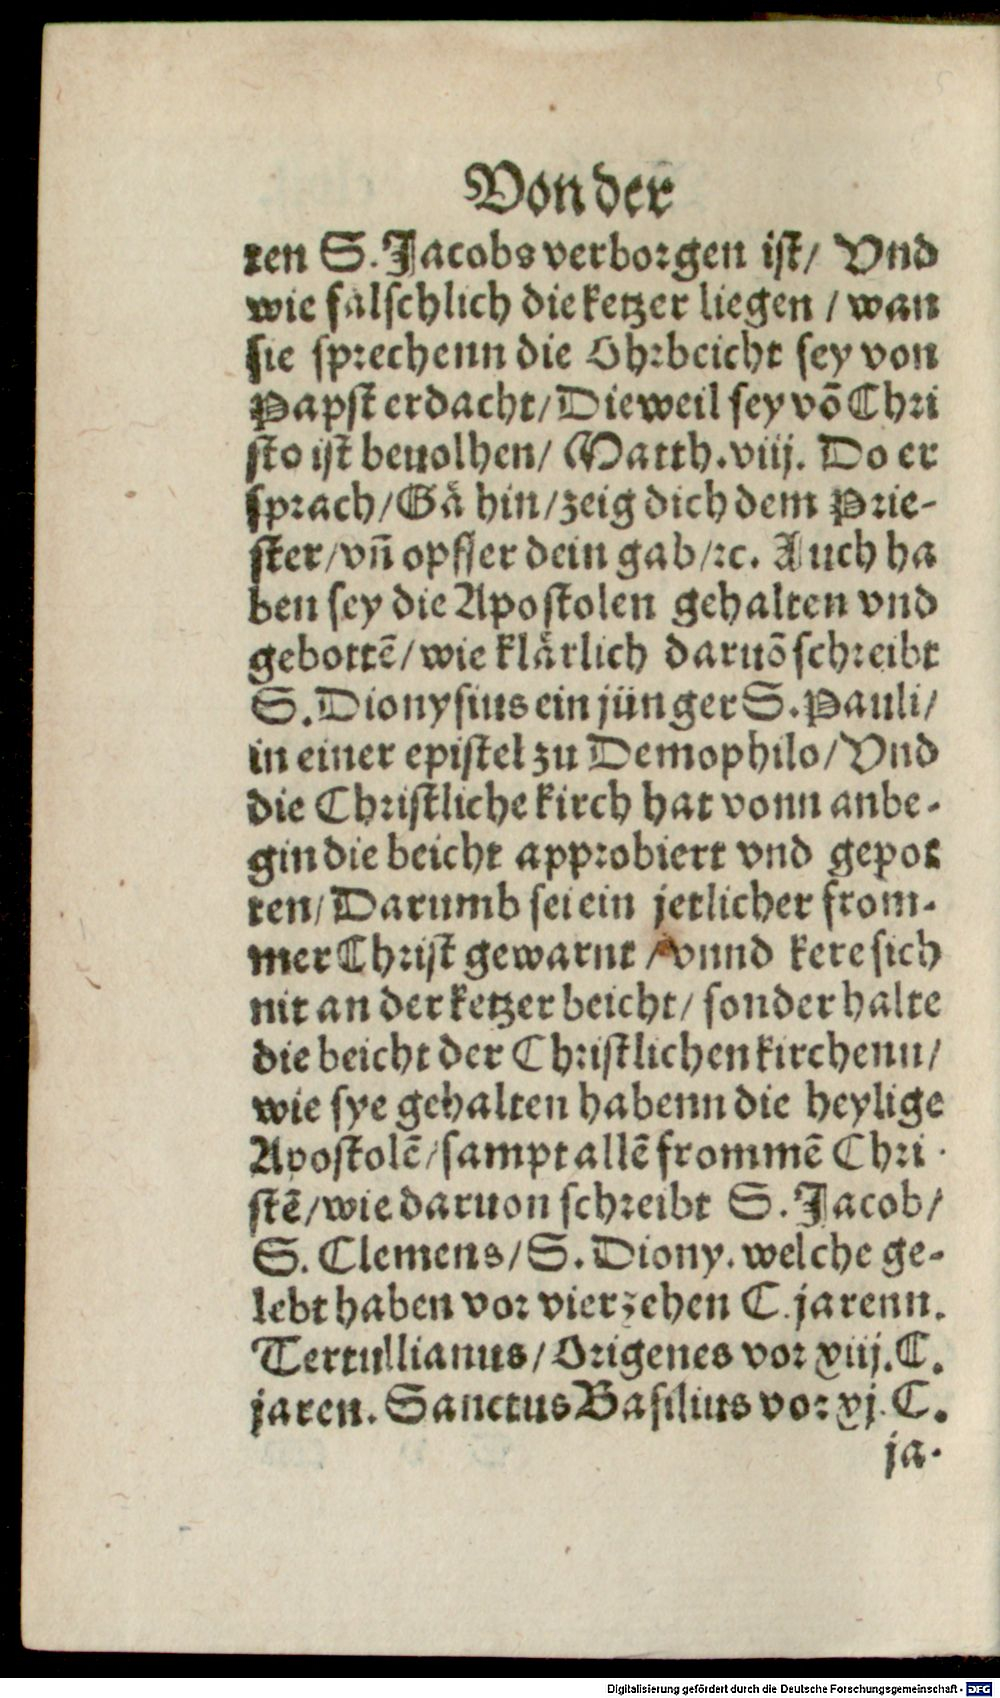 Von der
ten S. Jacobs verborgen ist/ Vnd
wie falschlich die ketzer liegen / wan
sie sprechenn die Ohrbeicht sey von
Papst erdacht/ Dieweil sey võ Chri
sto ist beuolhen/ Matth.viij. Do er
sprach/ Gå hin/ zeig dich dem Prie-
ster/ vñ opffer dein gab/ ꝛc. Auch ha
ben sey die Apostolen gehalten vnd
gebottẽ/ wie klärlich daruõ schreibt
S. Dionysius ein jünger S. Pauli/
in einer epistel zu Demophilo/ Vnd
die Christliche kirch hat vonn anbe-
gin die beicht approbiert vnd gepot
ten/ Darumb sei ein jetlicher from-
mer Christ gewarnt / vnnd kere sich
nit an der ketzer beicht/ sonder halte
die beicht der Christlichen kirchenn/
wie sye gehalten habenn die heylige
Apostolẽ/ sampt allẽ frommẽ Chri-
stẽ/ wie daruon schreibt S. Jacob/
S. Clemens/ S. Diony. welche ge-
lebt haben vor vierzehen C. jarenn.
Tertullianus/ Origenes vor xiij. C.
jaren. Sanctus Basilius vor xj. C.
ja-
Digitalisierung gefördert durch die Deutsche Forschungsgemeinschaft - DFG